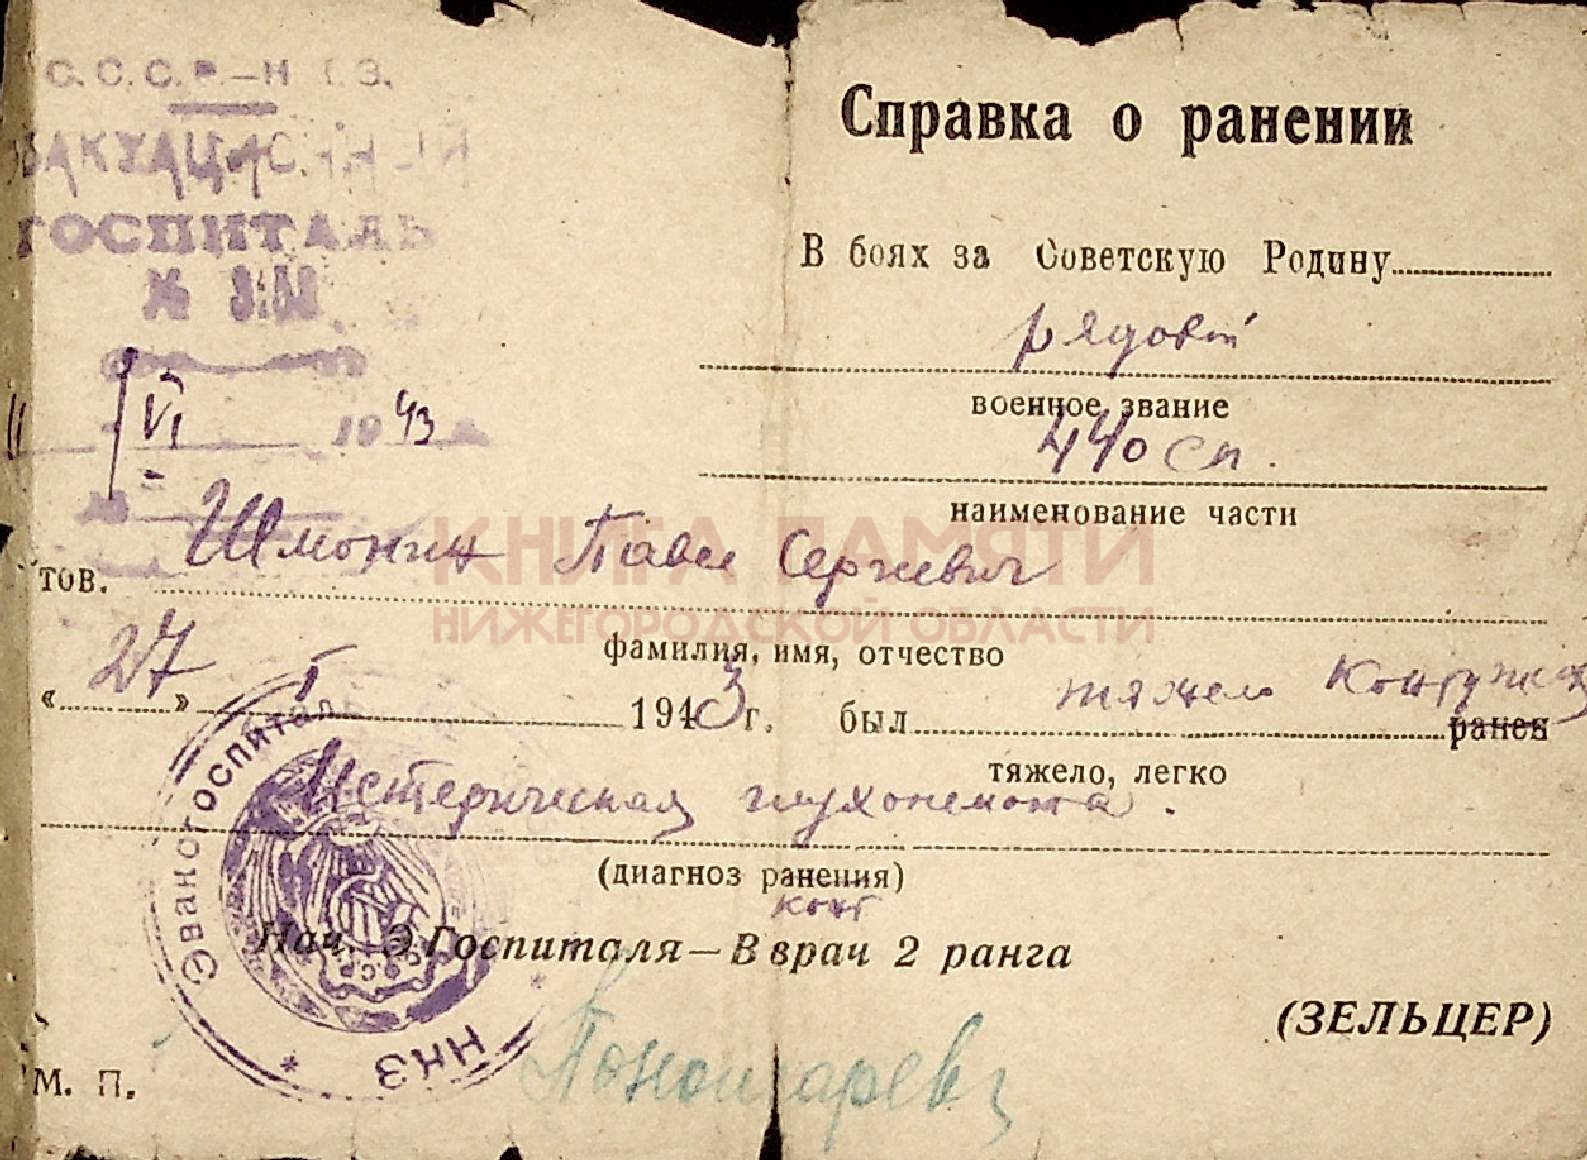 С. С. С. Р. – Н К З.
ЭВАКУАЦИОННЫЙ
ГОСПИТАЛЬ
№
11 VI 1943 г.
Справка о ранении
В боях за Советскую Родину
рядовой
военное звание
440 сп.
наименование части
тов. Шмонин Павел Сергеевич
фамилия, имя, отчество
«27» 1943 г. был тяжело контужен ранен
тяжело, легко
Истерическая глухонемота.
(диагноз ранения)
конт
Нач. Э.Госпиталя — Вврач 2 ранга
(ЗЕЛЬЦЕР)
М. П.
Эвакогоспиталь
НКЗ
КНИГА ПАМЯТИ
НИЖЕГОРОДСКОЙ ОБЛАСТИ